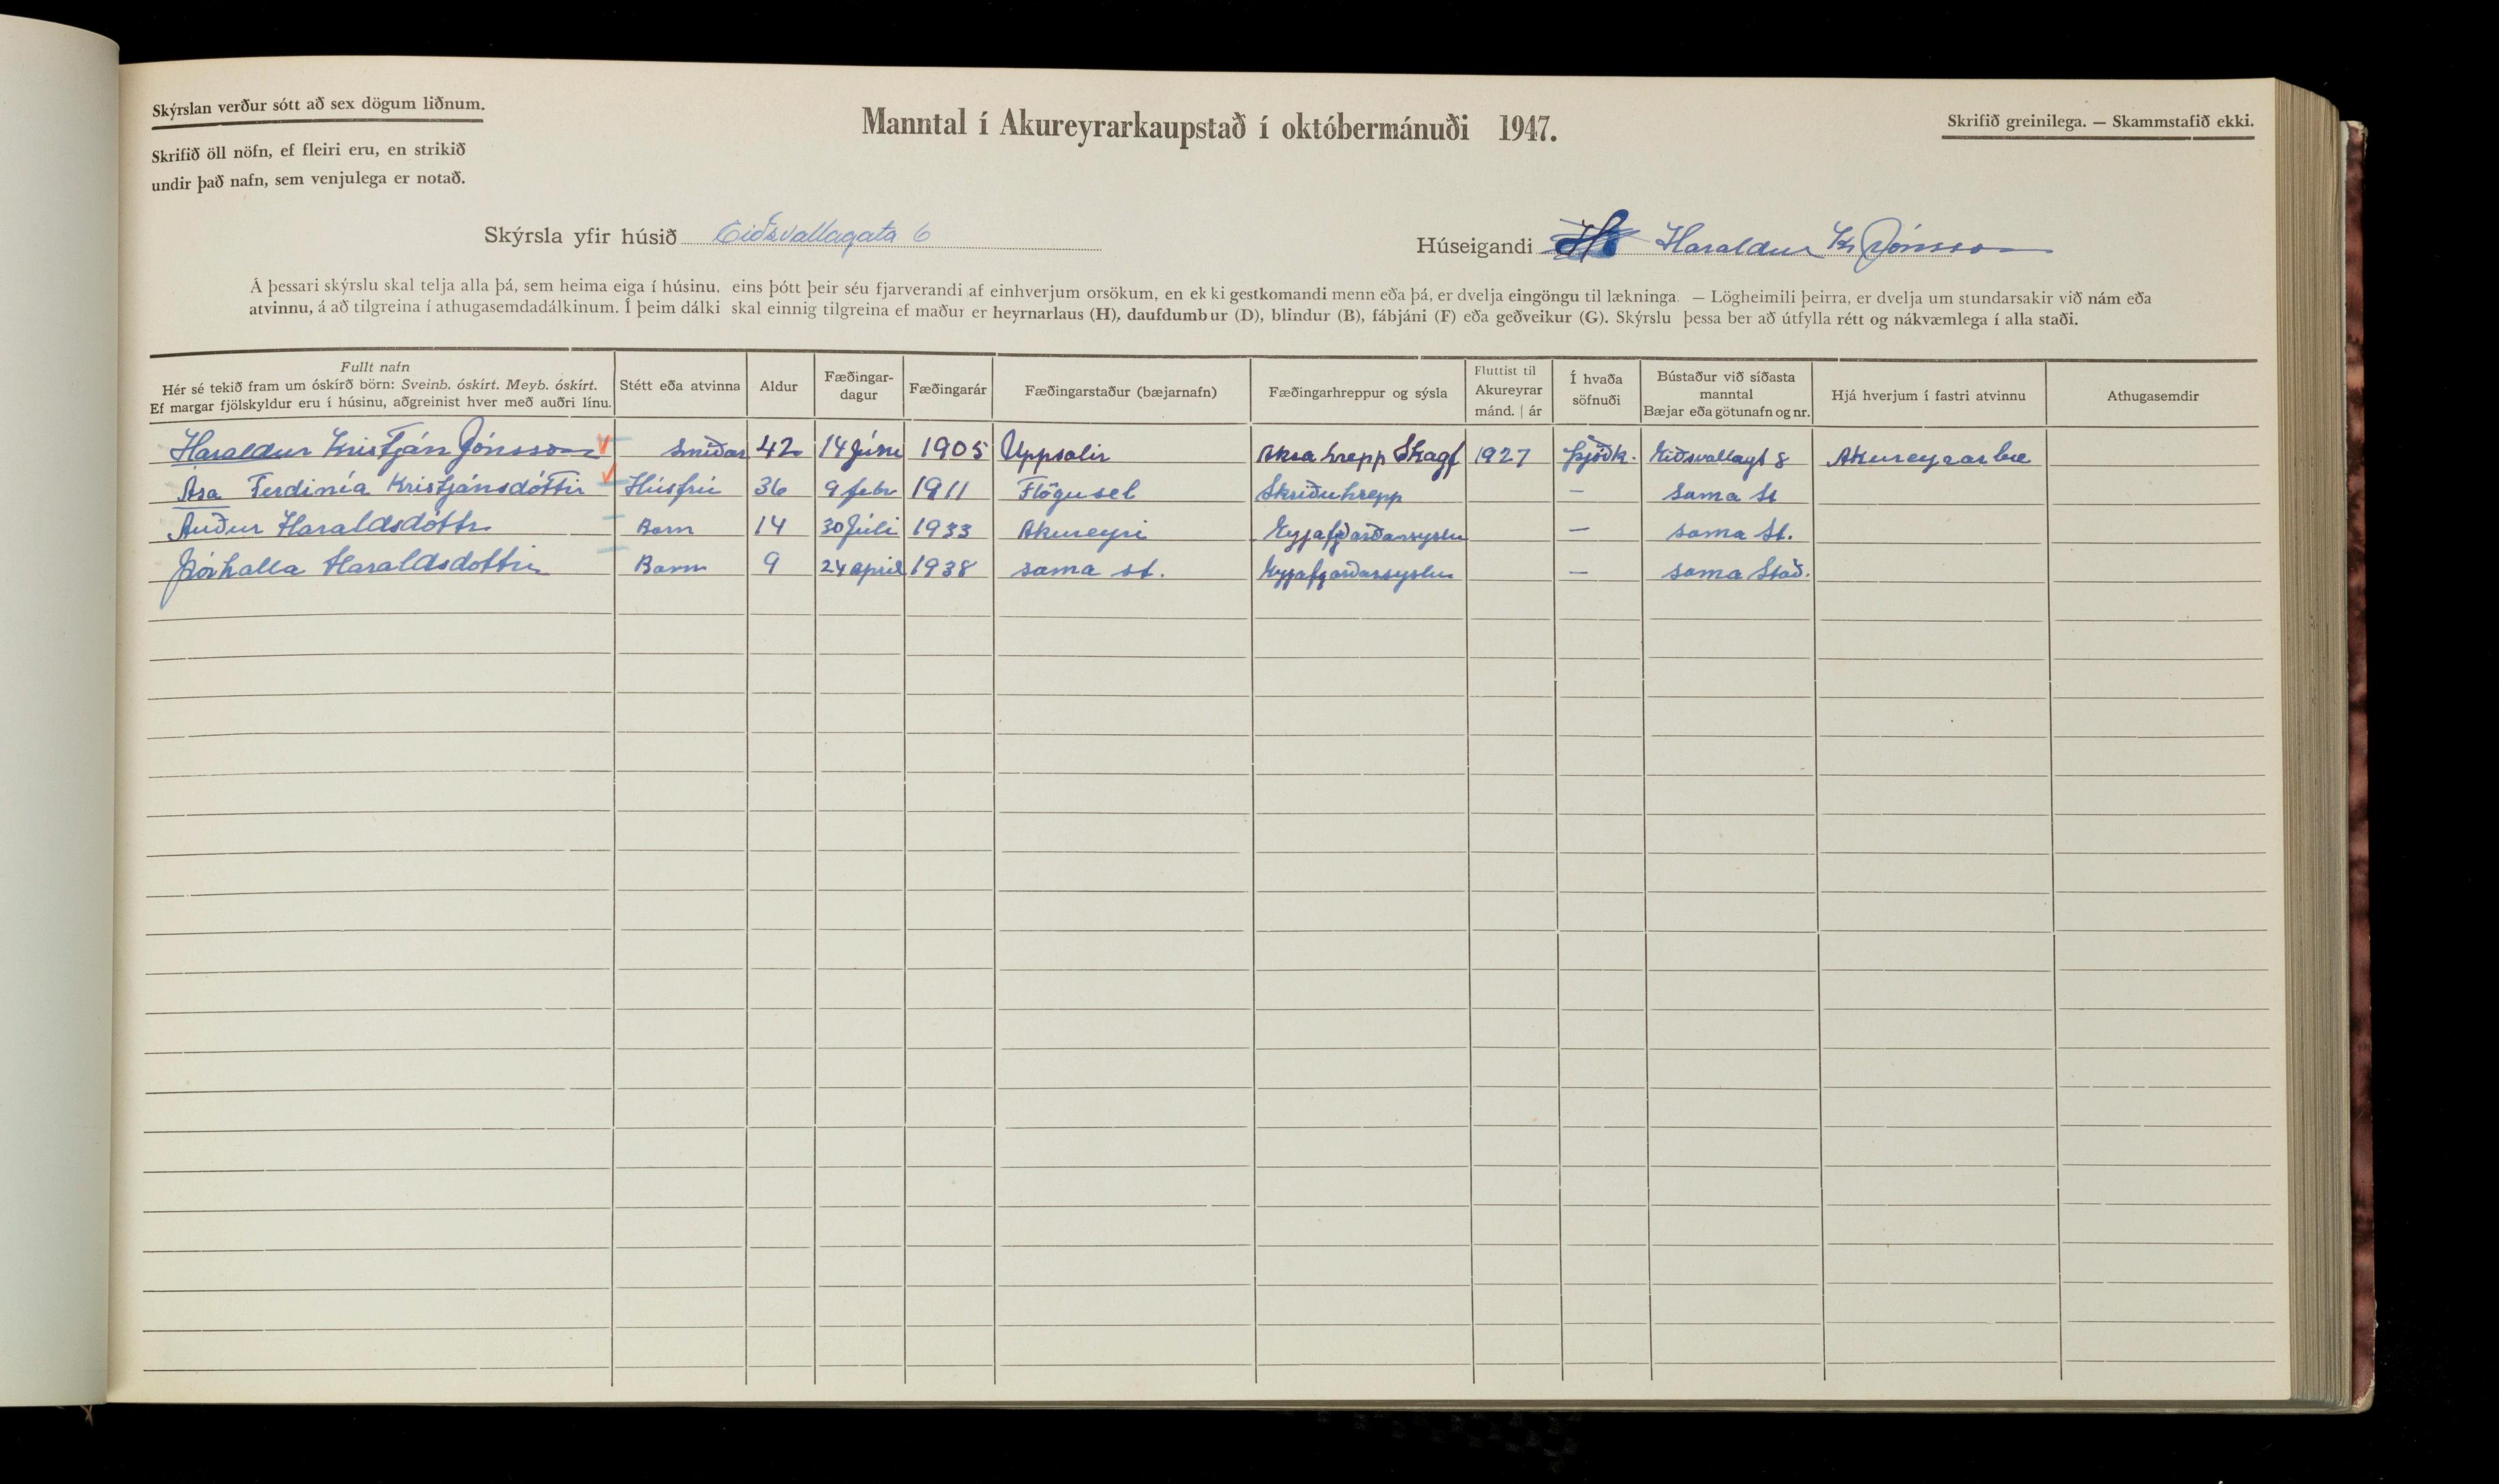 Skýrslan verður sótt að sex dögum liðnum.
Skrifið öll nöfn, ef fleiri eru, en strikið
undir það nafn, sem venjulega er notað.
Manntal í Akureyrarkaupstað í októbermánuði 1947.
Skrifið greinilega. — Skammstafið ekki.
Skýrsla yfir húsið Eiðsvallagata 6
Húseigandi Haraldur Kr Jónsson
Á þessari skýrslu skal telja alla þá, sem heima eiga í húsinu, eins þótt þeir séu fjarverandi af einhverjum orsökum, en ekki gestkomandi menn eða þá, er dvelja eingöngu til lækninga. — Lögheimili þeirra, er dvelja um stundarsakir við nám eða
atvinnu, á að tilgreina í athugasemdadálkinum. Í þeim dálki skal einnig tilgreina ef maður er heyrnarlaus (H), daufdumbur (D), blindur (B), fábjáni (F) eða geðveikur (G). Skýrslu þessa ber að útfylla rétt og nákvæmlega í alla staði.
Fullt nafn
Hér sé tekið fram um óskírð börn: Sveinb. óskírt. Meyb. óskírt.
Ef margar fjölskyldur eru í húsinu, aðgreinist hver með auðri línu.
Stétt eða atvinna
Aldur
Fæðingar-
dagur
Fæðingarár
Fæðingarstaður (bæjarnafn)
Fæðingarhreppur og sýsla
Fluttist til
Akureyrar
mánd. | ár
Í hvaða
söfnuði
Bústaður við síðasta
manntal
Bæjar eða götunafn og nr.
Hjá hverjum í fastri atvinnu
Athugasemdir
Haraldur Kristján Jónsson smiðar 42 14 Júní 1905 Uppsalir Akra hrepp Skagf 1927 Þjóðk. Eiðsvallagt 8 Akureyrarbæ
Ása Ferdinía Kristjánsdóttir Húsfrú 36 9 febr 1911 Flögusel Skriðuhrepp — sama st
Auður Haraldsdóttr Barn 14 30 Júli 1933 Akureyri Eyjafjarðarsyslu — sama st.
Þórhalla Haraldsdottir Barn 9 24 april 1938 sama st. Eyjafjarðarsyslu — sama stað.